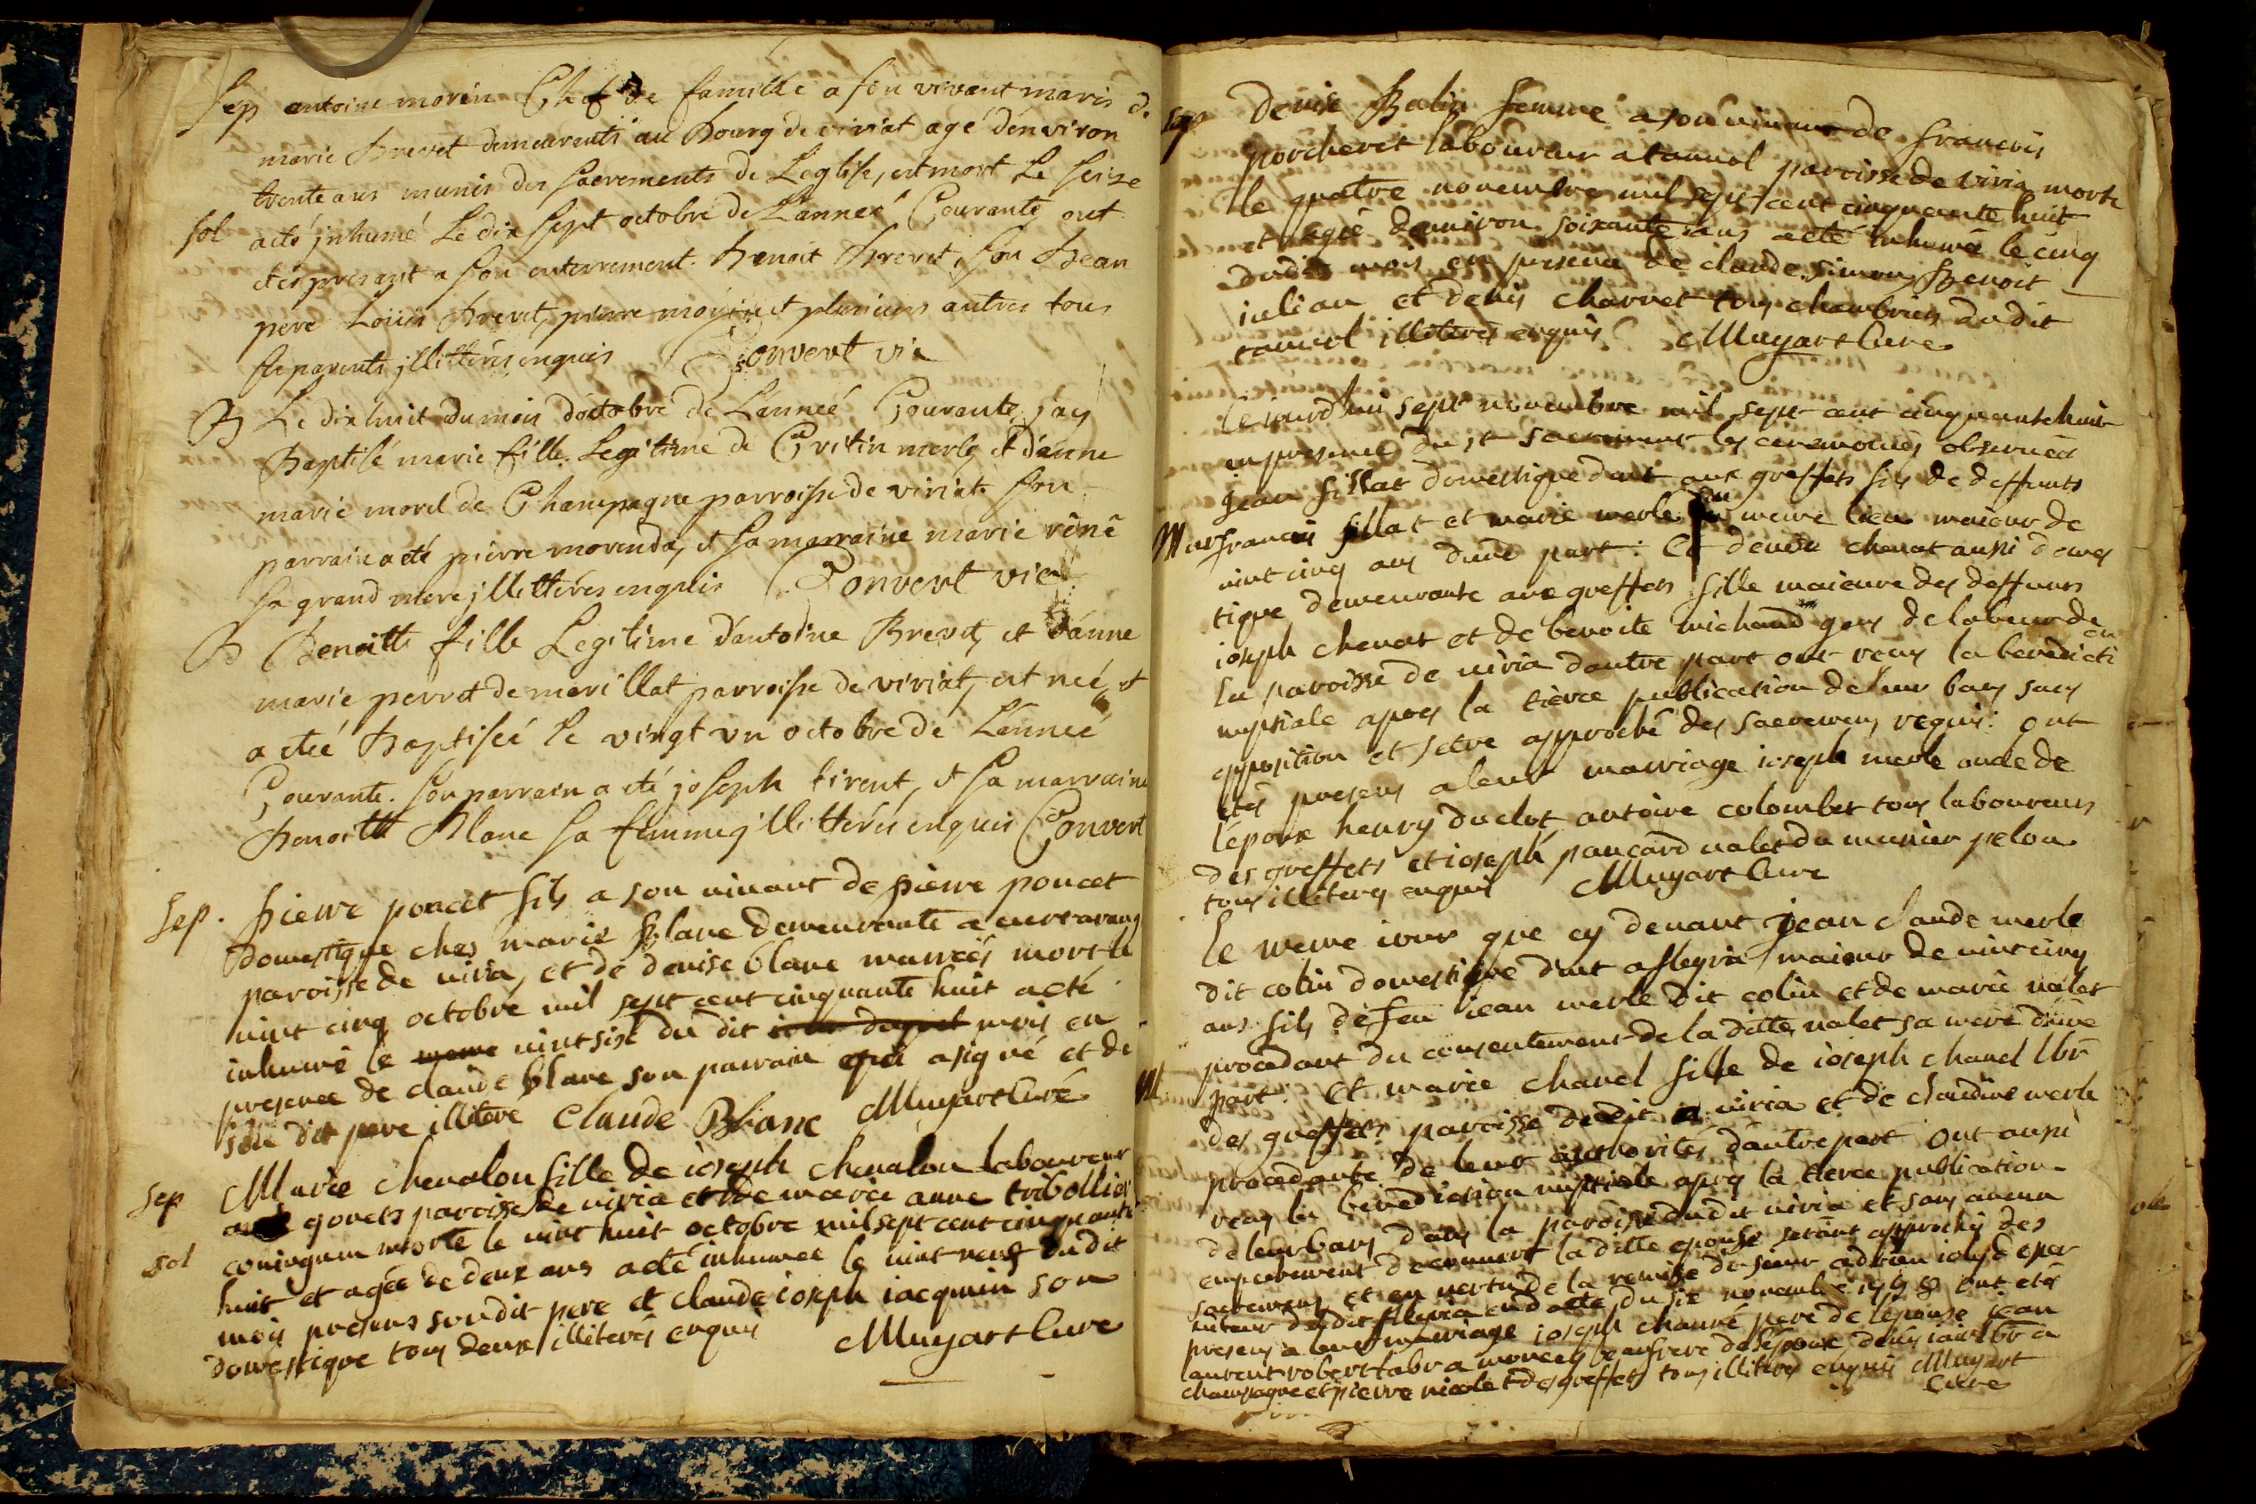 Sep antoine morin Chef de famille a son vivant maris d.
marie Brevet demeurents au Bourg de viriat agé dénviron
trente ans munis des sacrements de Léglise, est mort Le seize
sol acté jnhumé Le dix sept octobre de Lánneé Courante ont
étés présant a son enterrement. Benoit Brevet, son Beau
pere Loüis Brevet, pierre morin et plusieurs autres tous
ses parents jllittérés enquis Convert vic
B Le dix huit du mois dóctobre de Lánneé Courante j'ay
Baptisé marie fille Legitime de Cristin merle et dánne
marie morel de Champagne parroisse de viriat. son
parrain a été pierre morendo, et sa marraine marie réné
sa grand mere jllittérés enquis Convert vic
B Benoitte fille Legitime dántoine Brevet, et dánne
marie perret de marillat parroisse de viriat, est neé et
a éteé Baptiseé le vingt vn octobre de Lánneé
Courante. son parrain a été joseph tirent, et sa marraine
Benoitte Blanc sa femme jllittérés enquis Convert
Sep. pierre poncet fils a son vivant de pierre poncet
domestique ches marie Blanc demeurante a
paroisse de viria, et de denise blanc mariés mort le
vint cinq octobre mil sept cent cinquante huit acté
inhumé le vint six du dit mois en
presence de claude blanc son parrain qui a signé et de
son dit pere illitere Claude Blanc Muyart Curé
Sep Marie chevalon fille de ioseph chevalon laboureur
gonets paroisse de viria et de marie anne tribollier
sol coniugum morte le vint huit octobre mil sept cent cinquante
huit et agée de deux ans acté inhumee le vint neuf du dit
mois presens son dit pere et claude ioseph iacquin son
domestique tous deux illiterés enquis Muyart Cure
sep Denise Balin femme a son vivant de francois
porcheret laboureur a tanvol paroisse de viria morte
le quatre novembre mil sept cent cinquante huit
et agée denviron soixante ans acté inhumée le cinq
dudit mois en presence de claude simon, Benoit
iulian et denis charvet tous du dit
tanvol illiterés enquis Muyart Cure
Ce iourdhui sept novembre mil sept cent cinquante huit
en presence du st sacrement les ceremonies observées
jean fillat domestique dmt aux greffets fils de deffunts
Mar francois fillat et marie merle du meme lieu maieur de
vint cinq ans dune part: Et denise chenat aussi domes
tique demeurante aux greffets fille maieure des deffunts
ioseph chenat et de benoite michaud gens de labeur de
la paroisse de viria dautre part ont reçus la benedicti
on
nuptiale apres la tierce publication de leur bans sans
opposition et setre approché des sacremens requis: ont
etés presens a leur marriage ioseph merle oncle de
lépoux henry duclos antoine colomber tous laboureurs
des greffets et ioseph pancard valet du munier pelou
tous illiteres enquis Muyart Cure
le meme iour que cy devant jean claude merle
dit colin domestique dmt a maieur de vint cinq
ans fils de feu iean merle dit colin et de marie valet
procedant du consentement de la ditte valet sa mere dúne
M. part. Et marie chanel fille de ioseph chanel lbr
des greffets paroisse dudit viria et de claudine merle
procedante de leur authorités dautre part ont aussi
reçus la benediction nuptiale apres la tierce publication
de leur bans dans la paroisse dudit viria et sans aucun
empechement decouvert la ditte epouse setant approchés des
sacremens et en vertu de la remise de sieur adrien
en date du six novembre 1758 ont etés
presens a leur marriage ioseph pere de lépouse jean
laurent robert labr a beaufrere de lépoux
champagne et pierre nicolet des greffets tous illiteres enquis Muyart
Cure